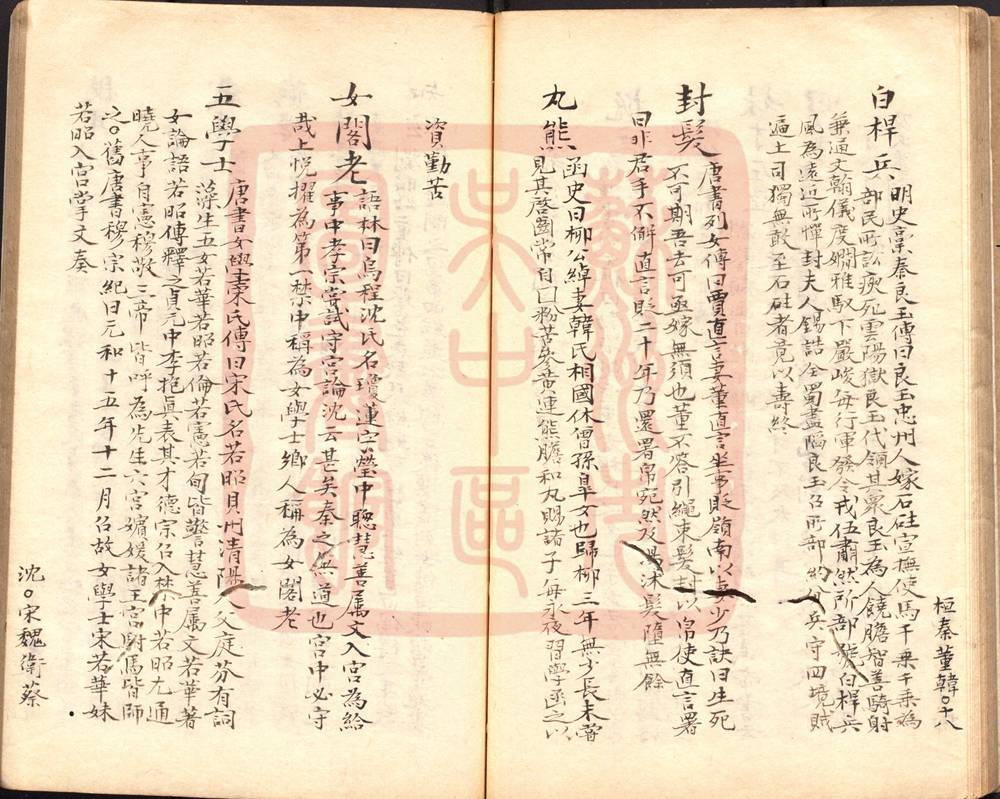 桓秦董韓○十八
白桿兵 明史槀秦良玉傳曰良玉忠州人嫁石砫宣撫使馬千乗千乗為
部民所訟瘐死雲陽獄良玉代領其衆良玉為人饒膽智善騎射
兼通文翰儀度嫻雅馭下嚴峻每行軍發令戎伍肅然所部號白桿兵
風為遠近所憚封夫人錫誥全蜀盡陥良玉召所部約分兵守四境賊
逼土司獨無敢至石砫者竟以壽終
封髮 唐書列女傳曰賈直言妻董直言坐事貶嶺南以妻少乃訣曰生死
不可期吾去可亟嫁無須也董不答引繩束髮封以帛使直言署
曰非君手不解直言貶二十年乃還署帛宛然及湯沐髮墮無餘
丸熊 函史曰柳公綽妻韓氏相國休曾孫皐女也歸柳三年無少長未嘗
見其啓齒常自 粉苦參黄連熊膽和丸賜諸子每永夜習學函之以
資勤苦
女閣老 語林曰烏程沈氏名瓊蓮字瑩中聰慧善属文入宮為給
事中孝宗嘗試守宮論沈云甚矣秦之無道也宮中必守
哉上悦擢為第一禁中稱為女學士鄉人稱為女閣老
五學士 唐書女學士宋氏傳曰宋氏名若昭貝州清陽人父庭芬有詞
藻生五女若華若昭若倫若憲若荀皆警慧善属文若華著
女論語若昭傳釋之貞元中李抱眞表其才德宗召入禁中若昭尤通
曉人事自憲穆敬三帝皆呼為先生六宮嬪媛諸王宮駙馬皆師
之○舊唐書穆宗紀曰元和十五年十二月召故女學士宋若華妹
若昭入宮掌文奏
沈○宋魏衛蔡